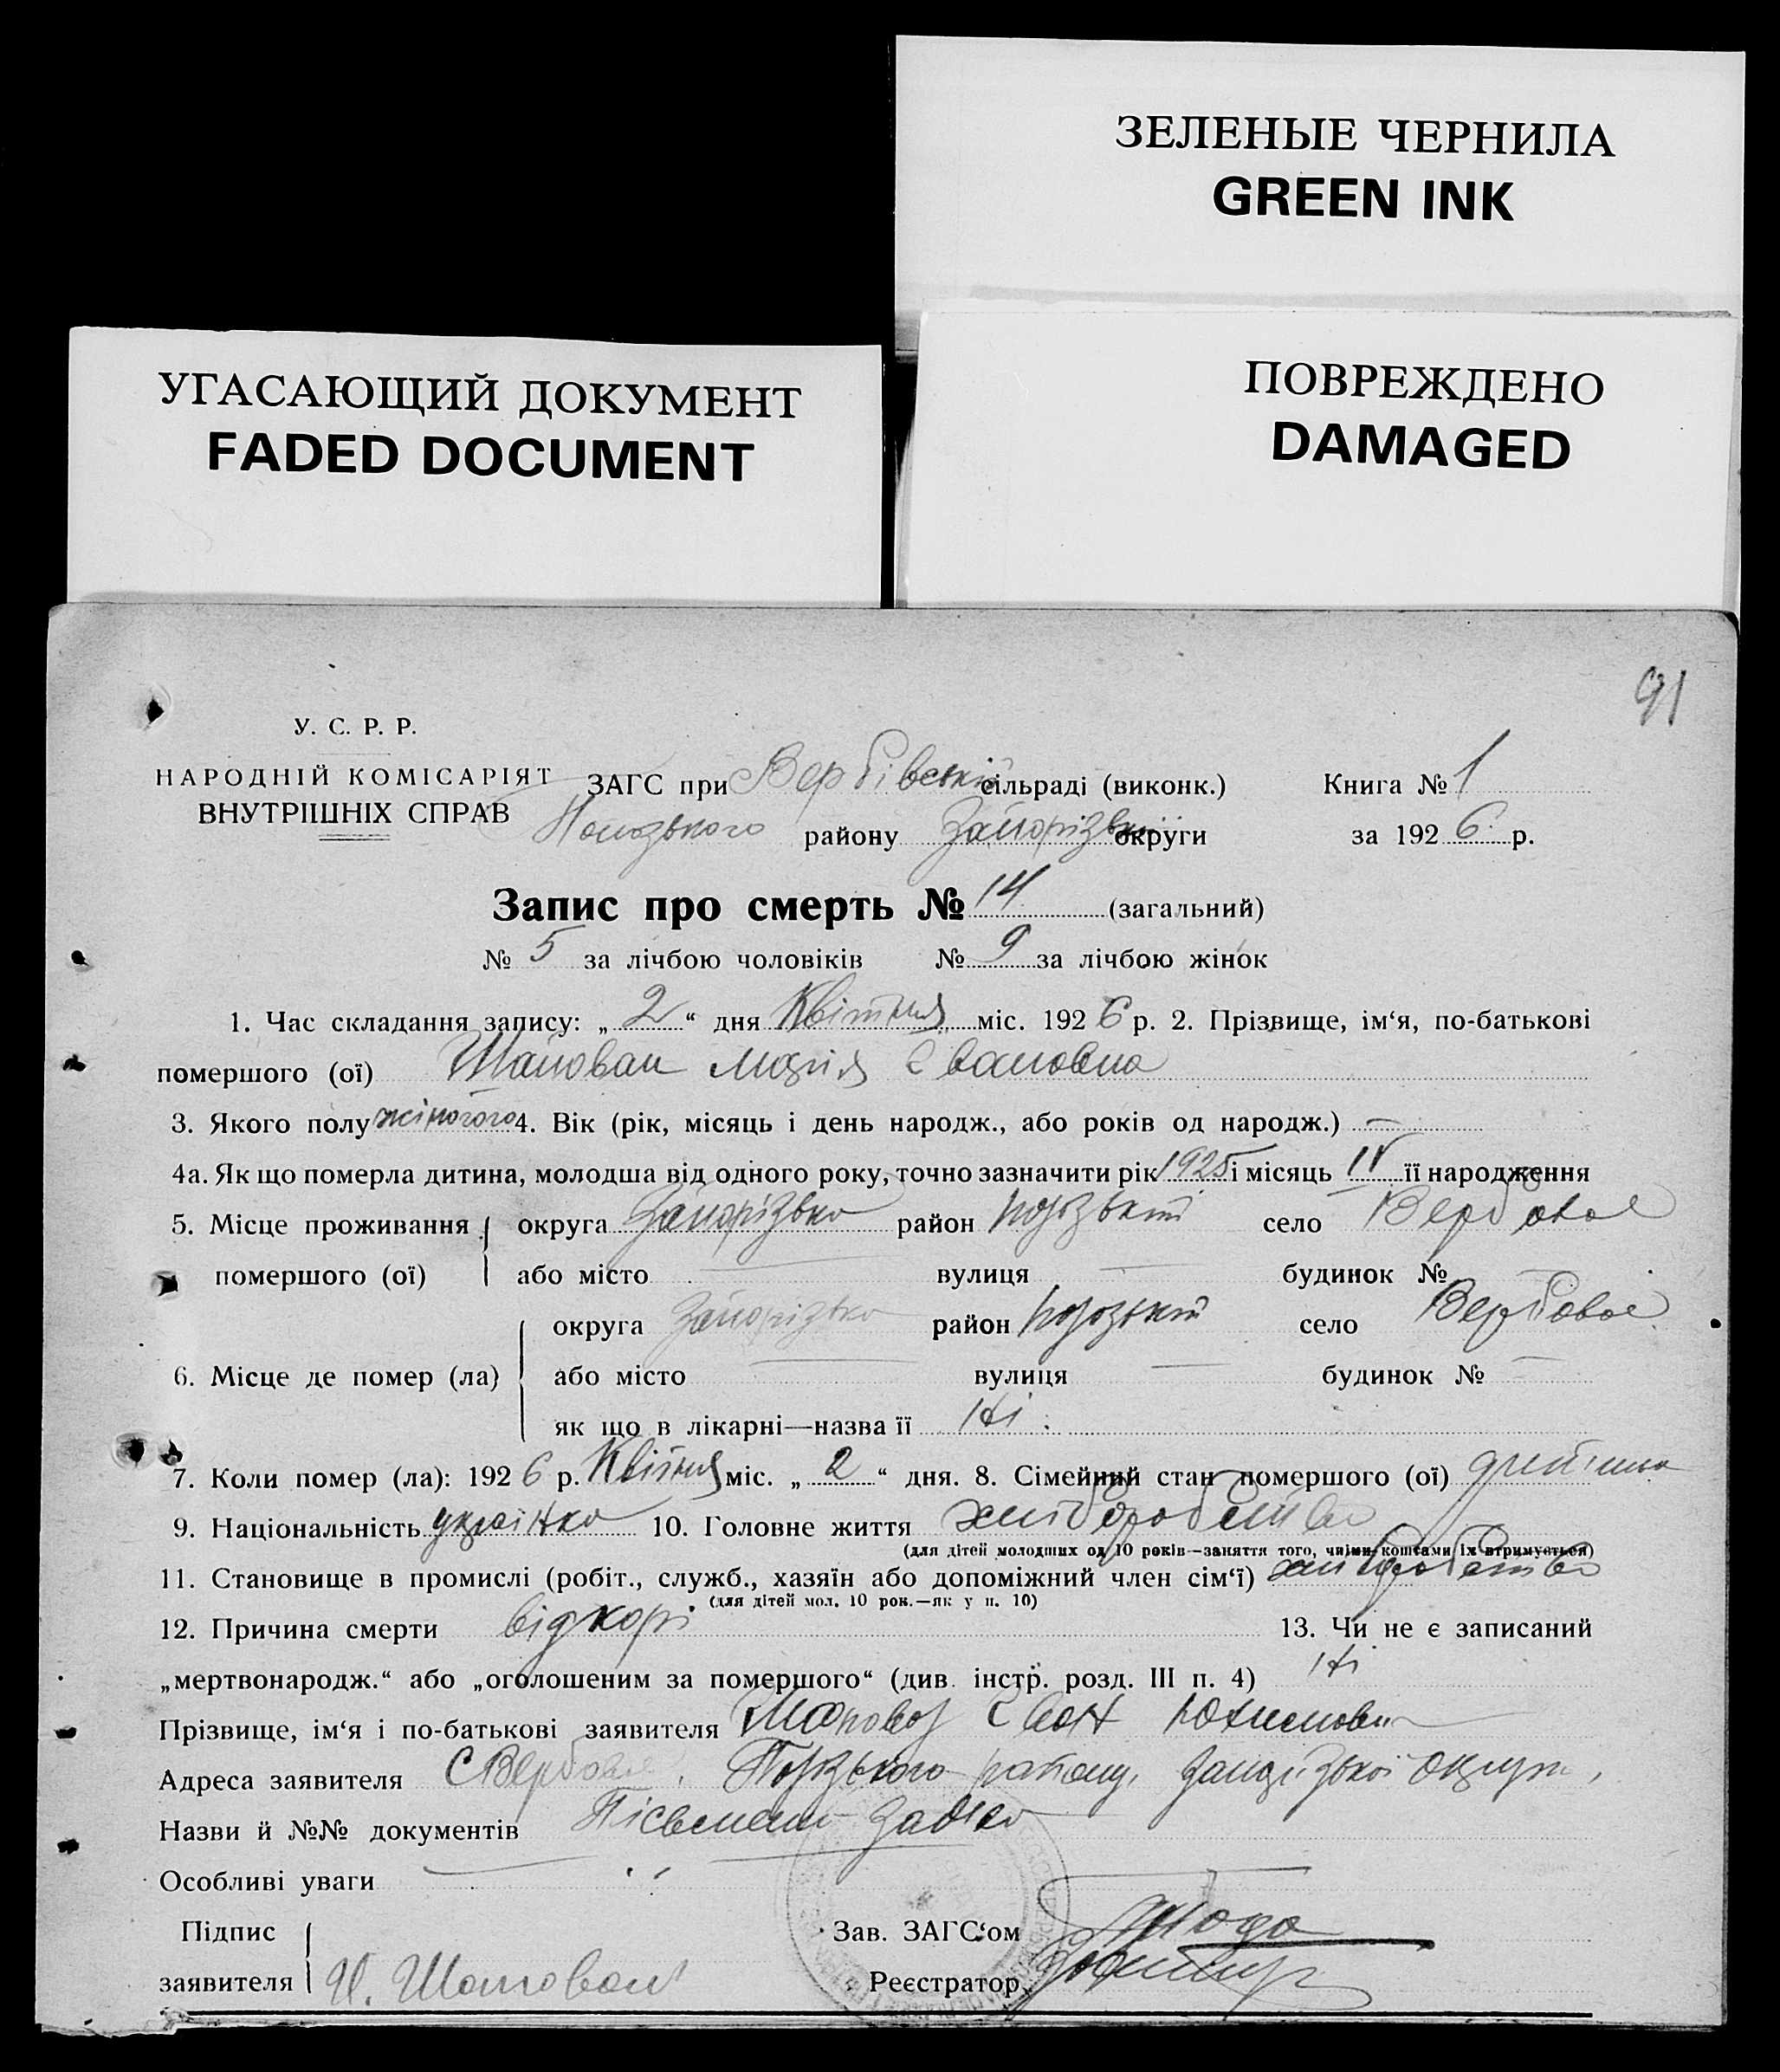 ЗЕЛЕНЫЕ ЧЕРНИЛА
GREEN INK
УГАСАЮЩИЙ ДОКУМЕНТ
FADED DOCUMENT
ПОВРЕЖДЕНО
DAMAGED
91
У. С. Р. Р.
НАРОДНІЙ КОМІСАРІЯТ
ВНУТРІШНІХ СПРАВ
ЗАГС при Вербівській сільраді (виконк.) Книга № 1
району Запорізької округи за 1926 р.
Запис про смерть № 14 (загальний)
№ 5 за лічбою чоловіків № 9 за лічбою жінок
1. Час складання запису: „2“ дня Квітня міс. 1926 р. 2. Прізвище, ім‘я, по-батькові
помершого (ої) Шаповал Марія Івановна
3. Якого полу жіночого 4. Вік (рік, місяць і день народж., або років од народж.) —
4а. Як що померла дитина, молодша від одного року, точно зазначити рік 1925 і місяць IV її народження
5. Місце проживання округа Запорізька район село Вербовое
помершого (ої) або місто — вулиця — будинок № —
округа Запорізька район село Вербовое
6. Місце де помер (ла) або місто — вулиця — будинок № —
як що в лікарні—назва її Ні.
7. Коли помер (ла): 1926 р. Квітня міс. „2“ дня. 8. Сімейний стан помершого (ої) дитина
9. Національність українка 10. Головне життя хліборобство
(для дітей молодших од 10 років—заняття того, чиїми коштами їх втримується)
11. Становище в промислі (робіт., служб., хазяїн або допоміжний член сім‘ї) хліборобство
(для дітей мол. 10 рок.—як у п. 10)
12. Причина смерти від корі 13. Чи не є записаний
„мертвонародж.“ або „оголошеним за помершого“ (див. інстр. розд. III п. 4) Ні
Прізвище, ім‘я і по-батькові заявителя Шаповал Іван
Адреса заявителя С Вербове, району, Запорізької округи,
Назви й №№ документів заява
Особливі уваги —
Підпис
заявителя И. Шаповал
Зав. ЗАГС‘ом
Реєстратор